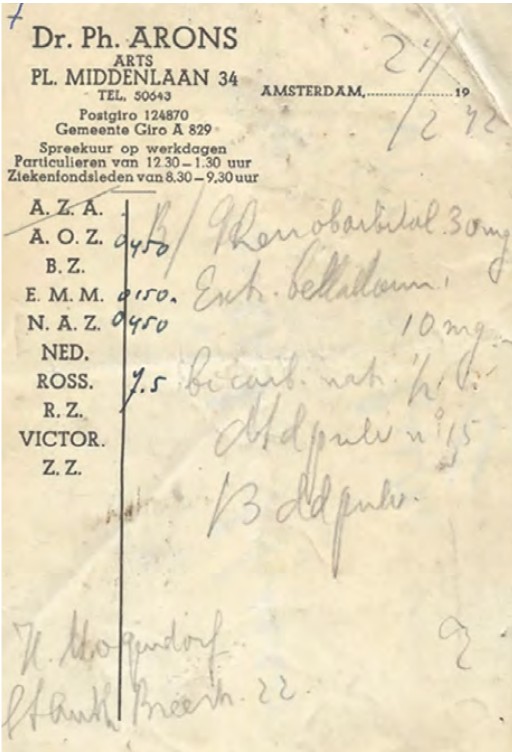 Dr. Ph. ARONS
ARTS
PL. MIDDENLAAN 34
TEL. 50643
AMSTERDAM, 24/2 1942
Postgiro 124870
Gemeente Giro A 829
Spreekuur op werkdagen
Particulieren van 12.30–1.30 uur
Ziekenfondsleden van 8.30–9,30 uur
A. Z. A.
R/ Phenobarbital 30 mg
A. O. Z. 0450
B. Z.
Extr. belladonn.
E. M. M. 0150.
N. A. Z. 0450
10 mg.
NED.
ROSS. 7.5
bicarb. natr. 1/2
R. Z.
dtd pulv no 15
VICTOR.
Z. Z.
dd pulv.
Breestr. 22.